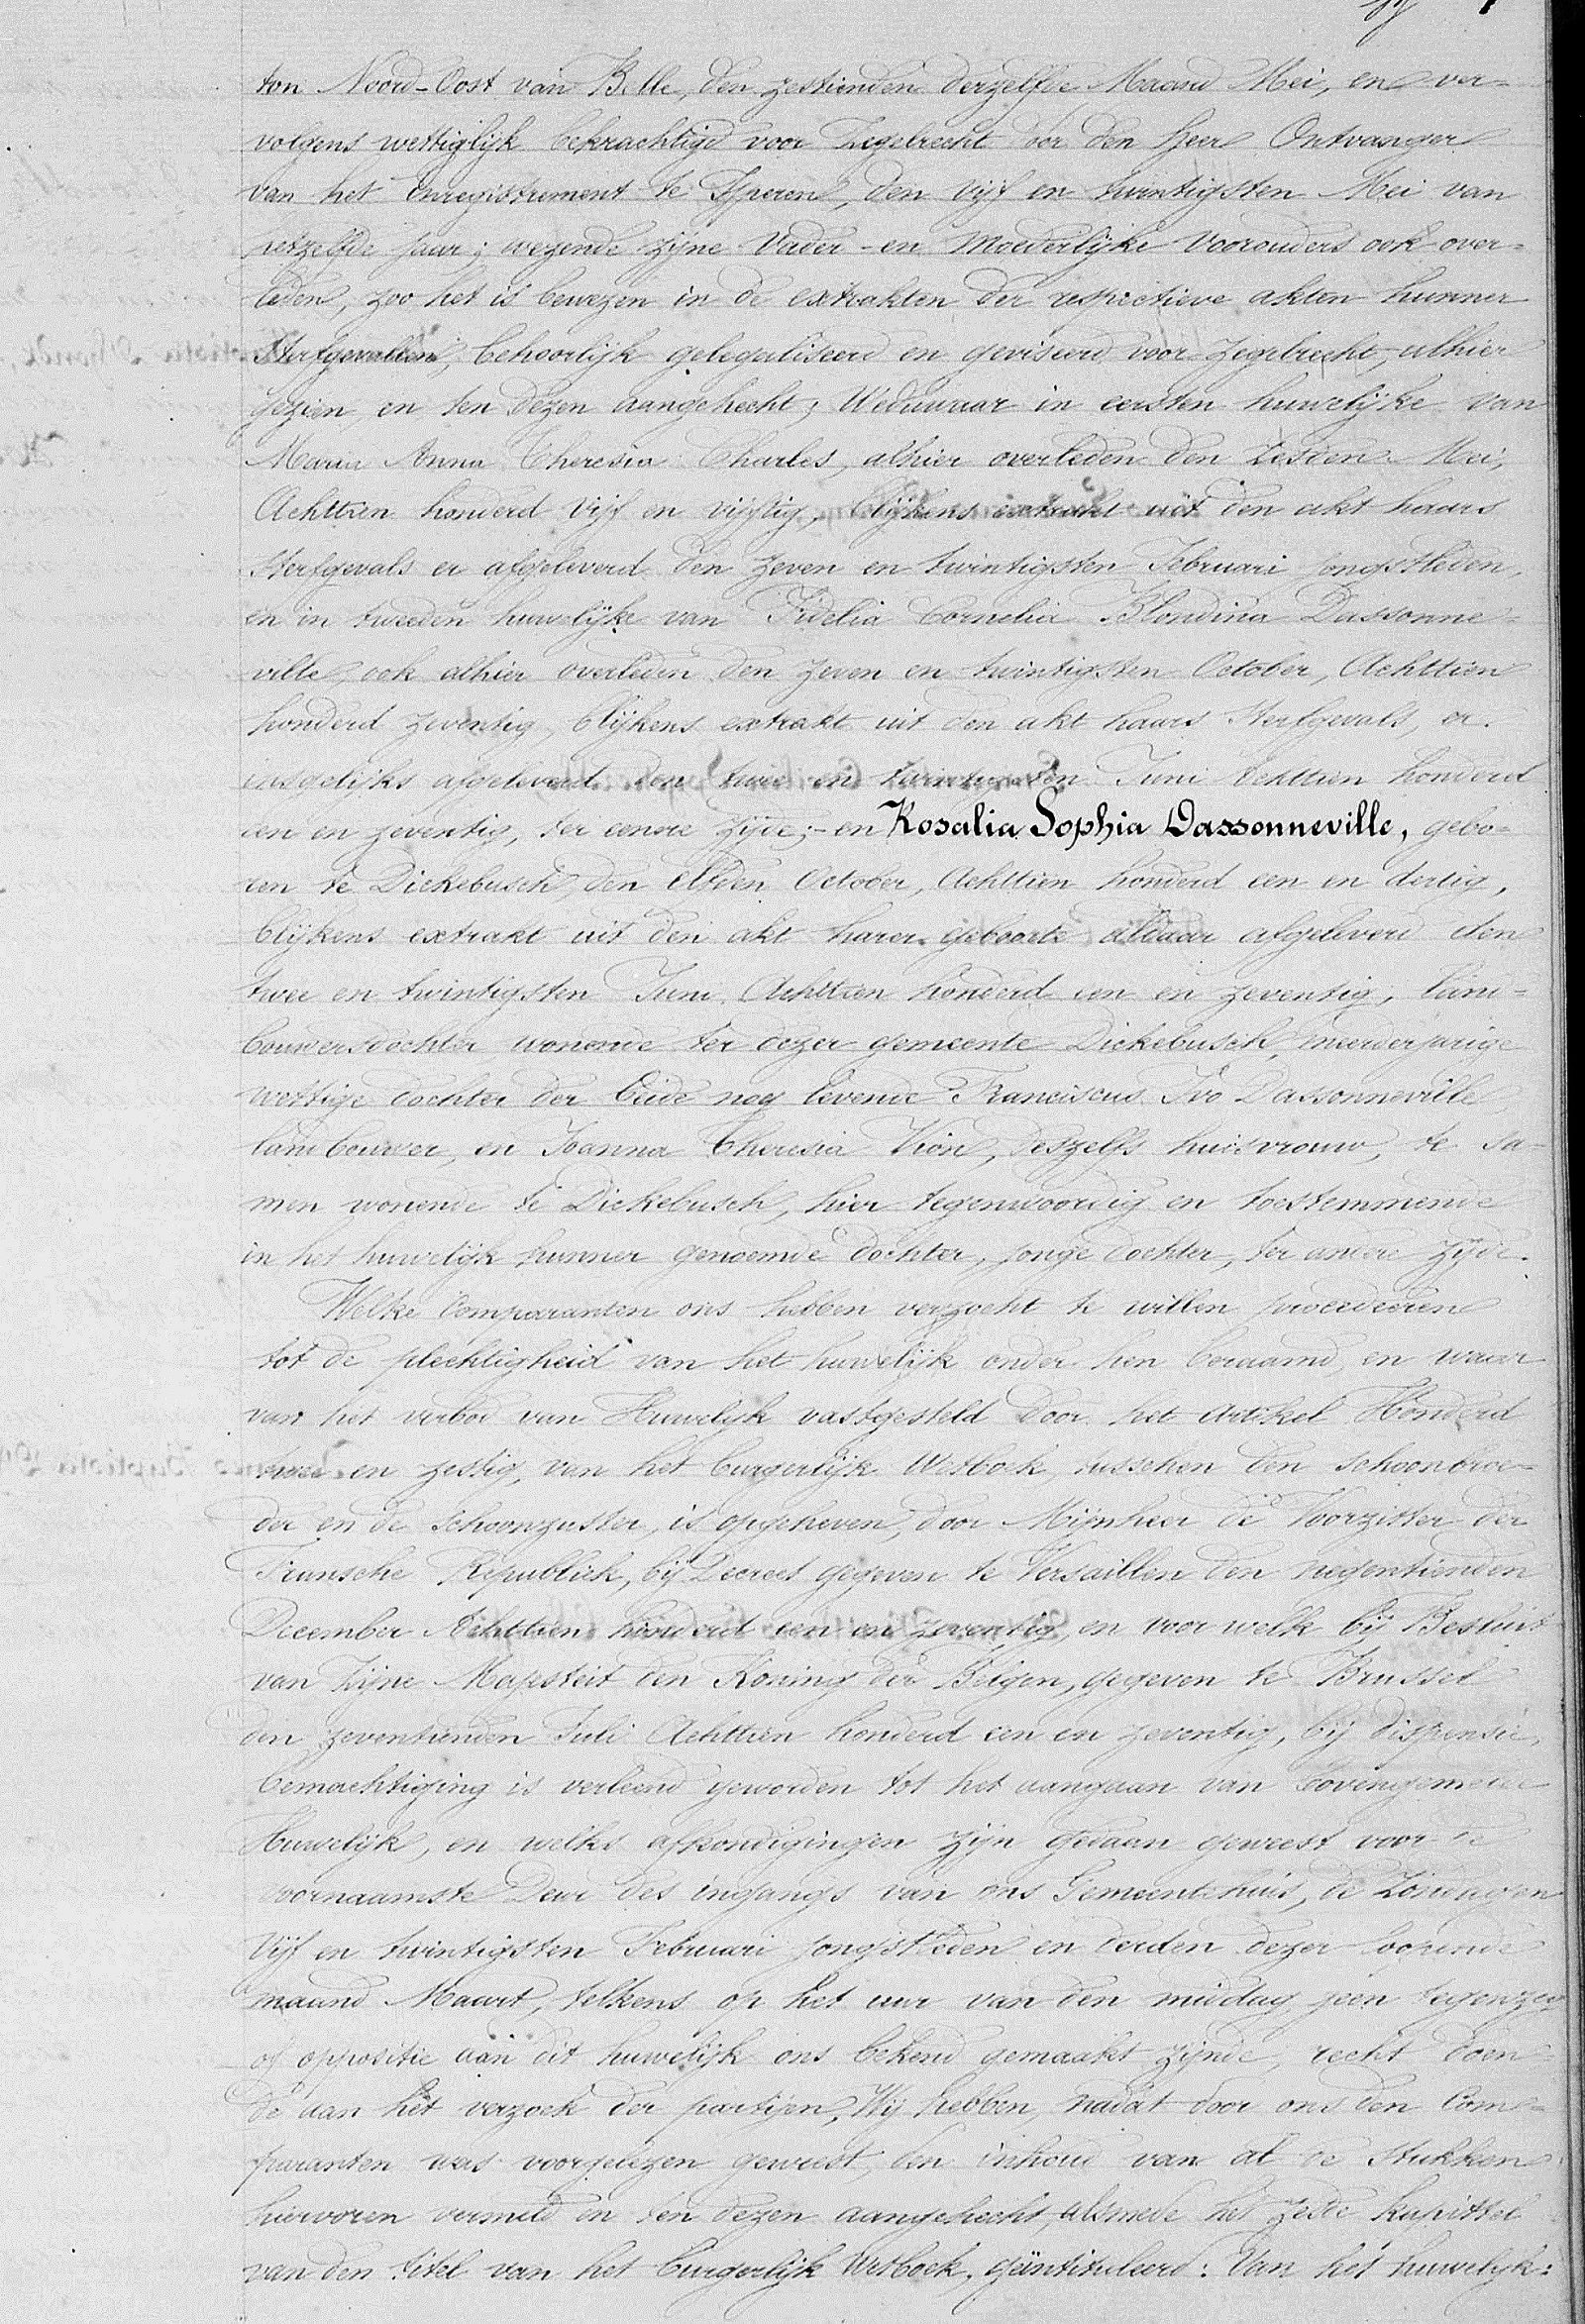 ton Noord-Oost van Belle, den zestienden derzelfde Maand Mei, en ver-
volgens wettiglijk bekrachtigd voor Zegelrecht door den Heer Ontvanger
van het Enregistrement te Yperen, den vijf en twintigsten Mei van
hetzelfde jaar; wezende zijne Vader - en Moederlijke Voorouders ook over-
leden, zoo het is bewezen in de extrakten der respectieve akten hunner
Sterfgevallen, behoorlijk gelegaliseerd en geviseerd voor Zegelrecht, alhier
gezien en ten dezen aangehecht; Weduwaar in eersten huwelijke van
Maria Anna Theresia Charles, alhier overleden den Zesden Mei,
Achttien honderd vijf en vijftig, blijkens extrakt uit den akt haars
Sterfgevals er afgeleverd den zeven en twintigsten Februari jongstleden,
en in tweeden huwelijke van Fidelia Cornelia Blondina Dassonne-
ville, ook alhier overleden den zeven en twintigsten October, Achttien
honderd zeventig, blijkens extrakt uit den akt haars Sterfgevals, er
insgelijks afgeleverd den twee en twintigsten Juni Achttien honderd
een en zeventig, ter eenre zijde; - en Rosalia Sophia Dassonneville, gebo-
ren te Dickebusch, den elfden October, Achttien honderd een en dertig,
blijkens extrakt uit den akt harer geboorte aldaar afgeleverd den
twee en twintigsten Juni Achttien honderd een en zeventig, land-
bouwersdochter wonende ter dezer gemeente Dickebusch, meerderjarige
wettige dochter der beide nog levende Franciscus Ivo Dassonneville
landbouwer, en Joanna Theresia Vion, deszelfs huisvrouw, te sa-
men wonende te Dickebusch, hier tegenwoordig en toestemmende
in het huwelijk hunner genoemde dochter, jonge dochter, ter andere zijde.
Welke Comparanten ons hebben verzocht te willen procedeeren
tot de plechtigheid van het huwelijk onder hen beraamd, en waar
van het verbod van Huwelijk vastgesteld door het Artikel Honderd
twee en zestig, van het burgerlijk Wetboek, tusschen den schoonbroe-
der en de Schoonzuster, is opgeheven, door Mijnheer de Voorzitter der
Fransche Republiek, bij Decreet gegeven te Versaillen den negentienden
December Achttien honderd een en zeventig, en voor welk bij Besluit
van Zijne Majesteit den Koning der Belgen, gegeven te Brussel
den zeventienden Juli Achttien honderd een en zeventig, bij dispensie,
bemachtiging is verleend geworden tot het aangaan van bovengemeld
Huwelijk, en welks afkondigingen zijn gedaan geweest voor de
voornaamste Deur des ingangs van ons Gemeentehuis, de Zondagen
Vijf en twintigsten Februari jongstleden en derden dezer loopende
maand Maart, telkens op het uur van den middag, geen tegenzeg
of oppositie aan dit huwelijk ons bekend gemaakt zijnde, recht doen-
de aan het verzoek der partijen, Wij hebben, nadat door ons den Com-
paranten was voorgelezen geweest, den inhoud van al de Stukken
hiervoren vermeld en ten dezen aangehecht, alsmede het zesde kapittel
van den titel van het burgerlijk Wetboek, geïntituleerd: Van het huwelijk: